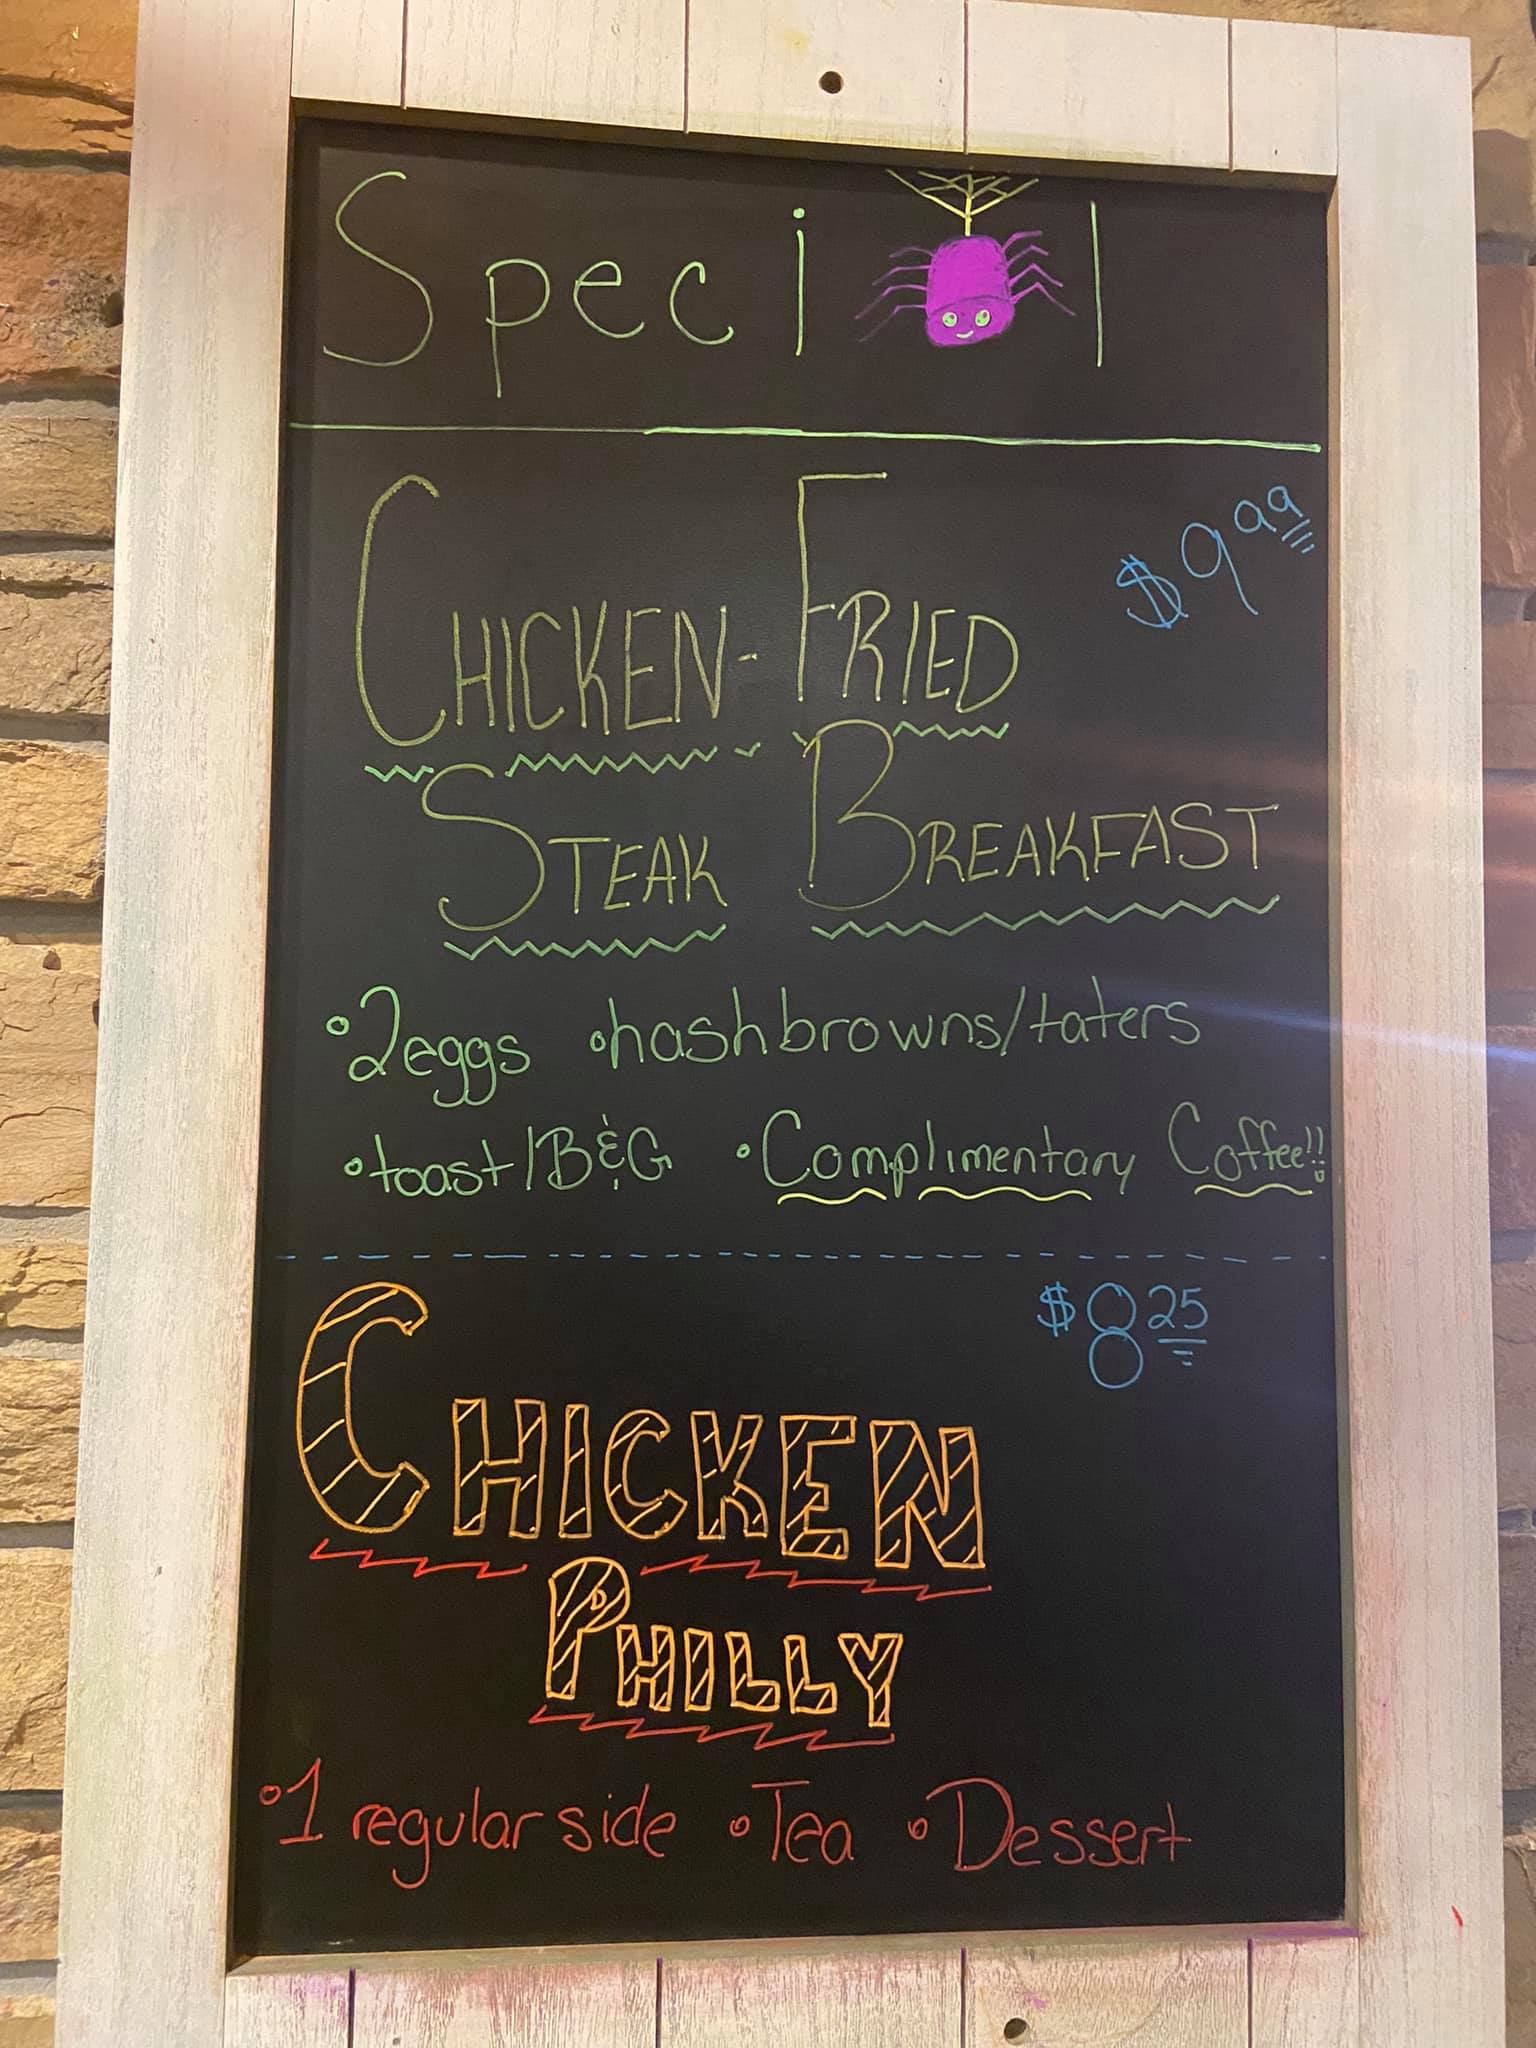 Special
Chicken-Fried $9.99
Steak Breakfast
•2eggs •hashbrowns/taters
•toast/B&G •Complimentary Coffee!!
Chicken $8.25
Philly
•1 regular side •Tea •Dessert